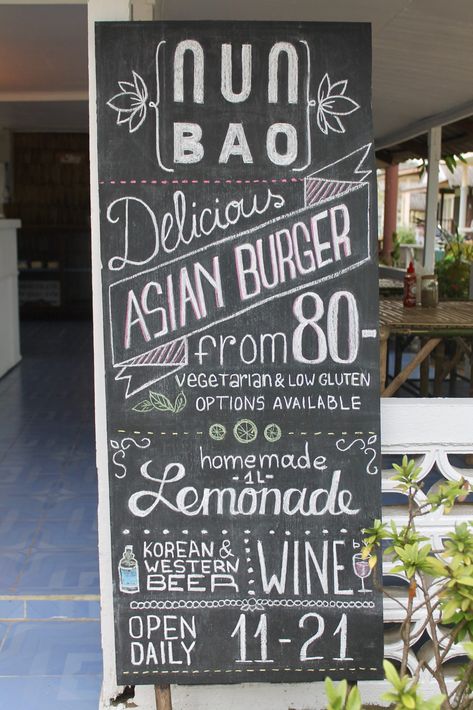 NUN
BAO
Delicious
ASIAN BURGER
from 80.-
VEGETARIAN & LOW GLUTEN
OPTIONS AVAILABLE
homemade
-1L-
Lemonade
KOREAN &
WESTERN
BEER
WINE
OPEN
DAILY
11-21